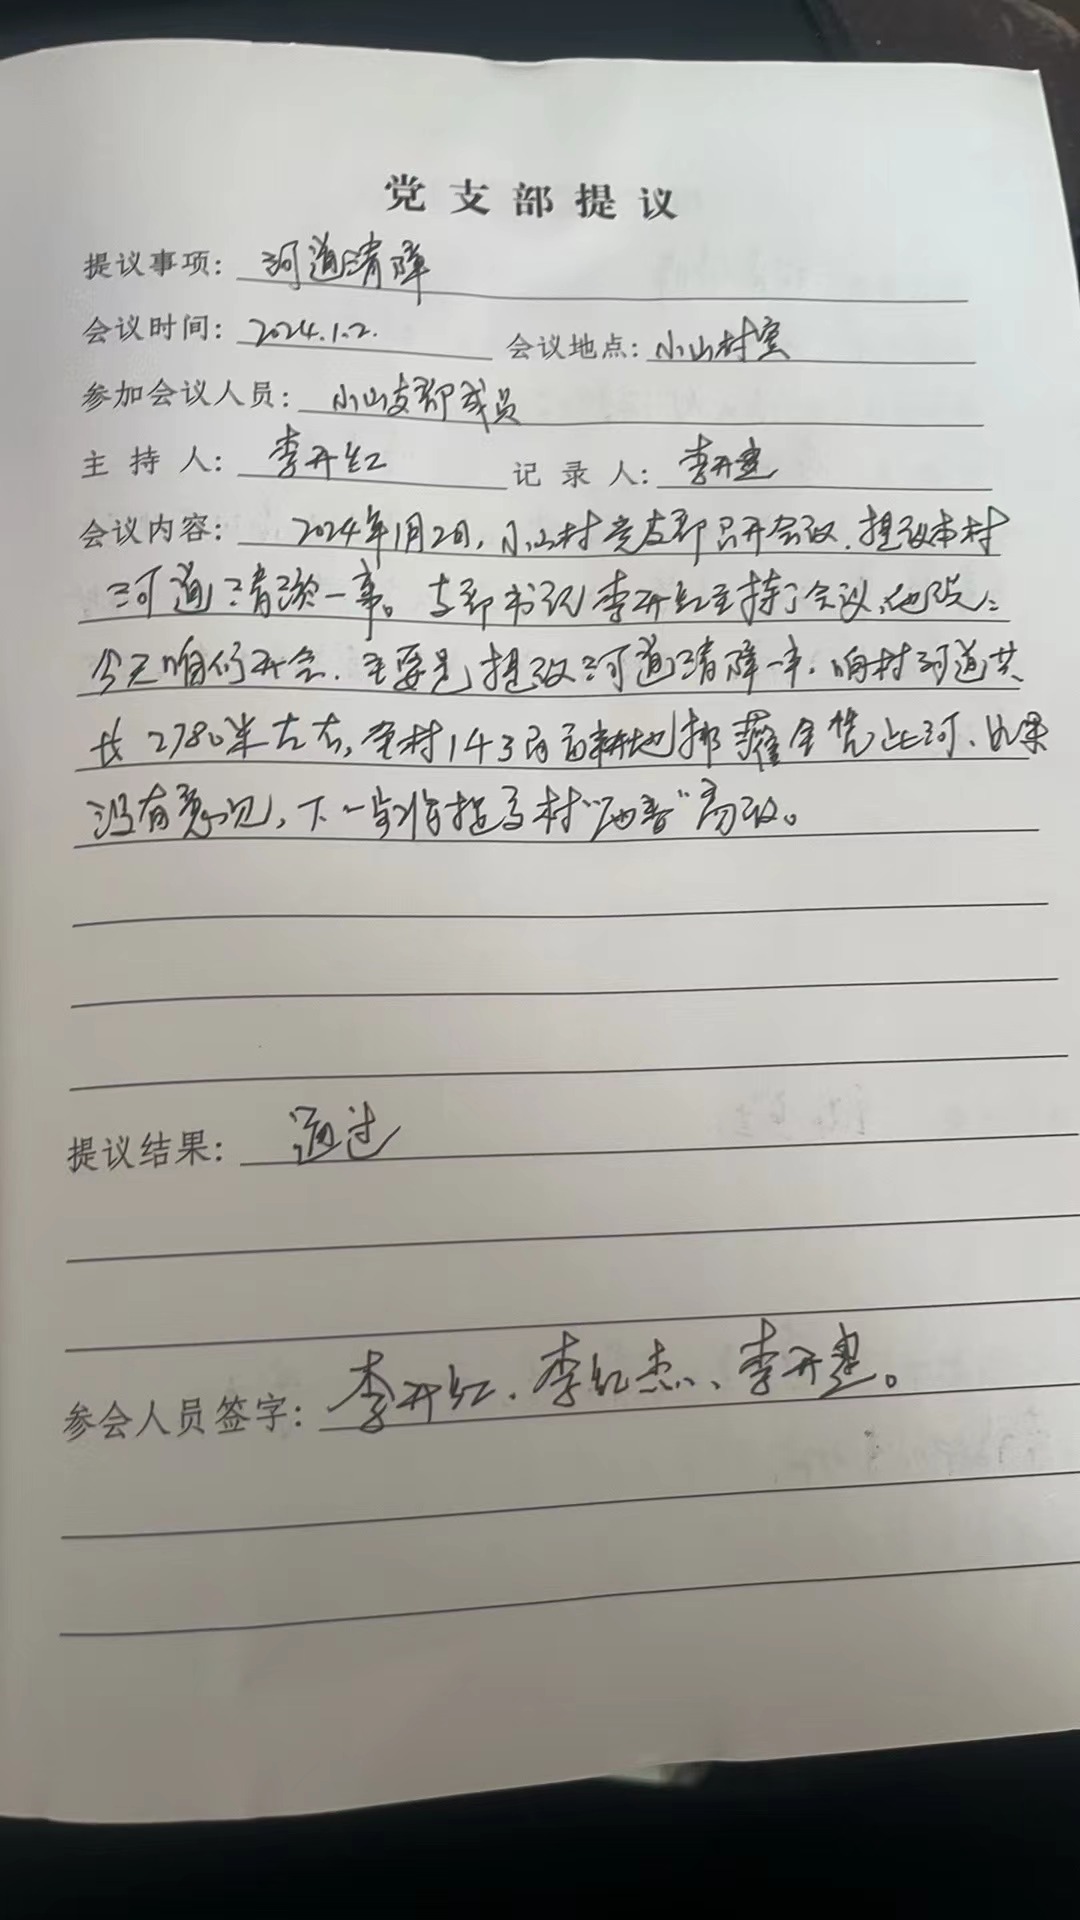 党支部提议
提议事项: 河道清障
会议时间: 2024.1.2. 会议地点: 小山村室
参加会议人员: 小山支部成员
主持人: 李开红 记录人: 李开建
会议内容: 2024年1月2日,小山村党支部召开会议,提议本村
河道清淤一事。支部书记李开红主持了会议,他说:
今天咱们开会,主要是提议河道清障一事,咱村河道共
长2780米左右,全村143亩耕地排灌全凭此河,如果
没有意见,下一步将提交村“两委”商议。
提议结果: 通过
参会人员签字: 李开红、李红杰、李开建。